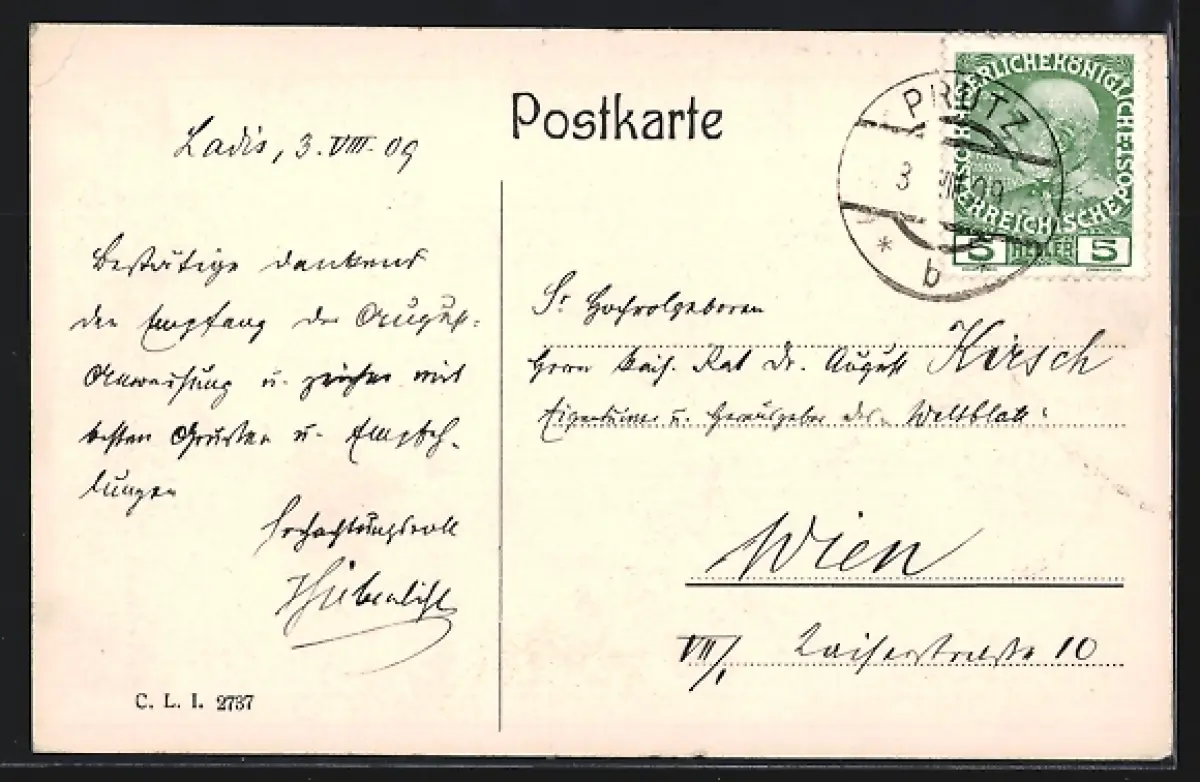 Postkarte
Ladis, 3. VIII. 09
Bestätige dankend
den Empfang der August-
Anweisung u. zeichne mit
besten Grüßen u. Empfeh-
lungen
hochachtungsvoll
KAISERLICHE KÖNIGLICHE ÖSTERREICHISCHE POST
5 HELLER 5
PRUTZ
3 VIII 09
* b
Sr. Hochwolgeboren
Herrn Kais. Rat Dr. August Kirsch
Eigentümer u. Herausgeber des "Weltblatt"
Wien
VII/1 Kaiserstraße 10
C. L. I. 2737